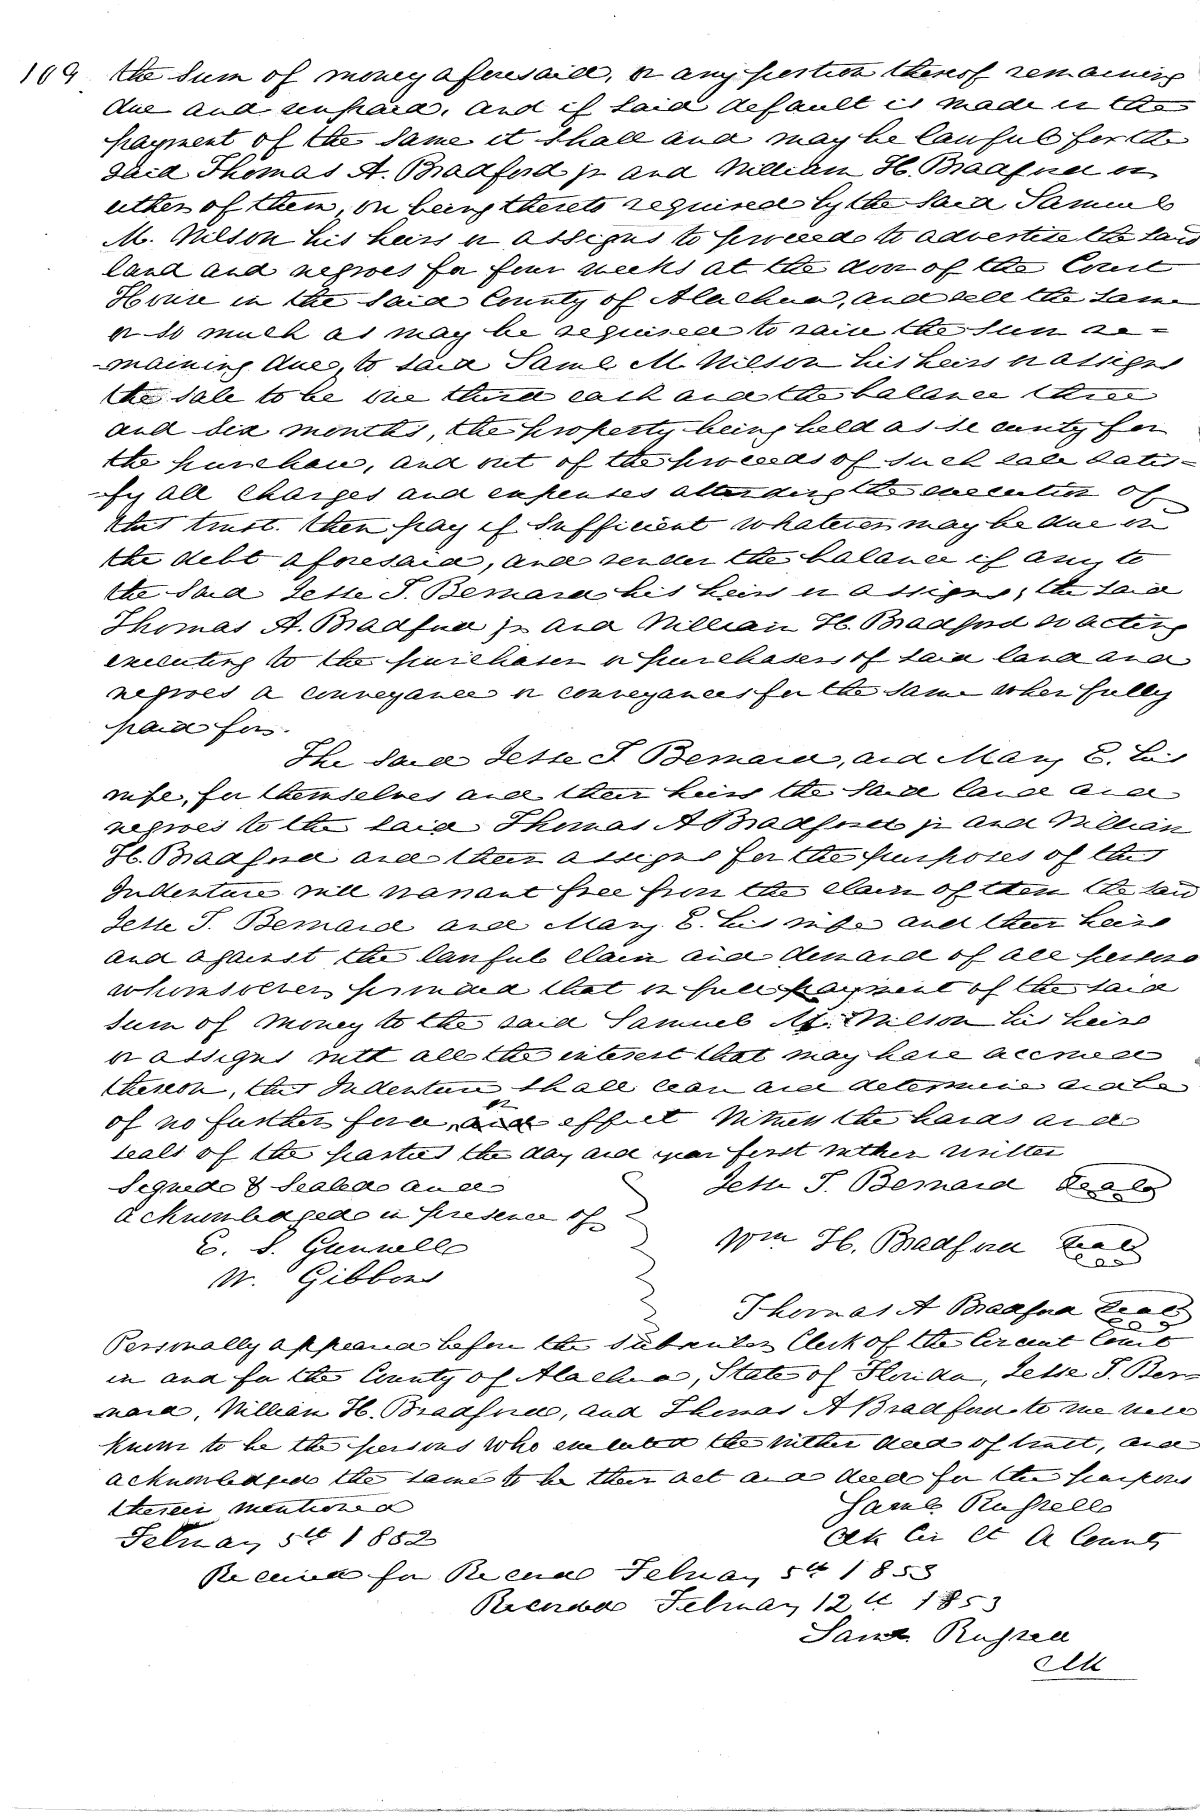 109 the sum of money aforesaid, or any portion thereof remaining
due and unpaid, and if said default is made in the
payment of the same it shall and may be lawful for the
said Thomas A. Bradford jr and William H. Bradford or
either of them, on being thereto required by the said Samuel
M. Wilson his heirs or assigns to proceed to advertise the said
land and negroes for four weeks at the door of the Court
House in the said County of Alachua, and sell the same
or so much as may be required to raise the sum re-
-maining due, to said Saml M. Wilson his heirs or assigns
the sale to be one third cash and the balance three
and six months, the property being held as security for
the purchase, and out of the proceeds of such sale satis-
-fy all charges and expenses attending the execution of
this trust. then pay if sufficient whatever may be due on
the debt aforesaid, and render the balance if any to
the said Jesse T. Bernard his heirs or assigns, the said
Thomas A. Bradford jr and William H. Bradford so acting
executing to the purchaser or purchasers of said land and
negroes a conveyance or conveyances for the same when fully
paid for.
The said Jesse T Bernard, and Mary E. his
wife, for themselves and their heirs the said land and
negroes to the said Thomas A Bradford jr and William
H. Bradford and their assigns for the purposes of this
Indenture will warrant free from the claim of them the said
Jesse T. Bernard and Mary E. his wife and their heirs
and against the lawful claim and demand of all persons
whomsoever provided that on full payment of the said
sum of money to the said Samuel M. Wilson his heirs
or assigns with all the interest that may have accrued
thereon, this Indenture shall cease and determine and be
of no further force, or effect Witness the hands and
seals of the parties the day and year first within written
Signed & Sealed and
acknowledged in presence of
E. S. Gunnell
W. Gibbons
Jesse T. Bernard Seal
Wm H. Bradford Seal
Thomas A Bradford Seal
Personally appeared before the subscriber Clerk of the Circuit Court
in and for the County of Alachua, State of Florida, Jesse T. Ber-
-nard, William H. Bradford, and Thomas A Bradford to me well
known to be the persons who executed the within deed of trust, and
acknowledged the same to be their act and deed for the purposes
therein mentioned
Saml Russell
February 5th 1852
Clk Cir Ct A County
Received for Record February 5th 1853
Recorded February 12th 1853
Saml Russell
Clk